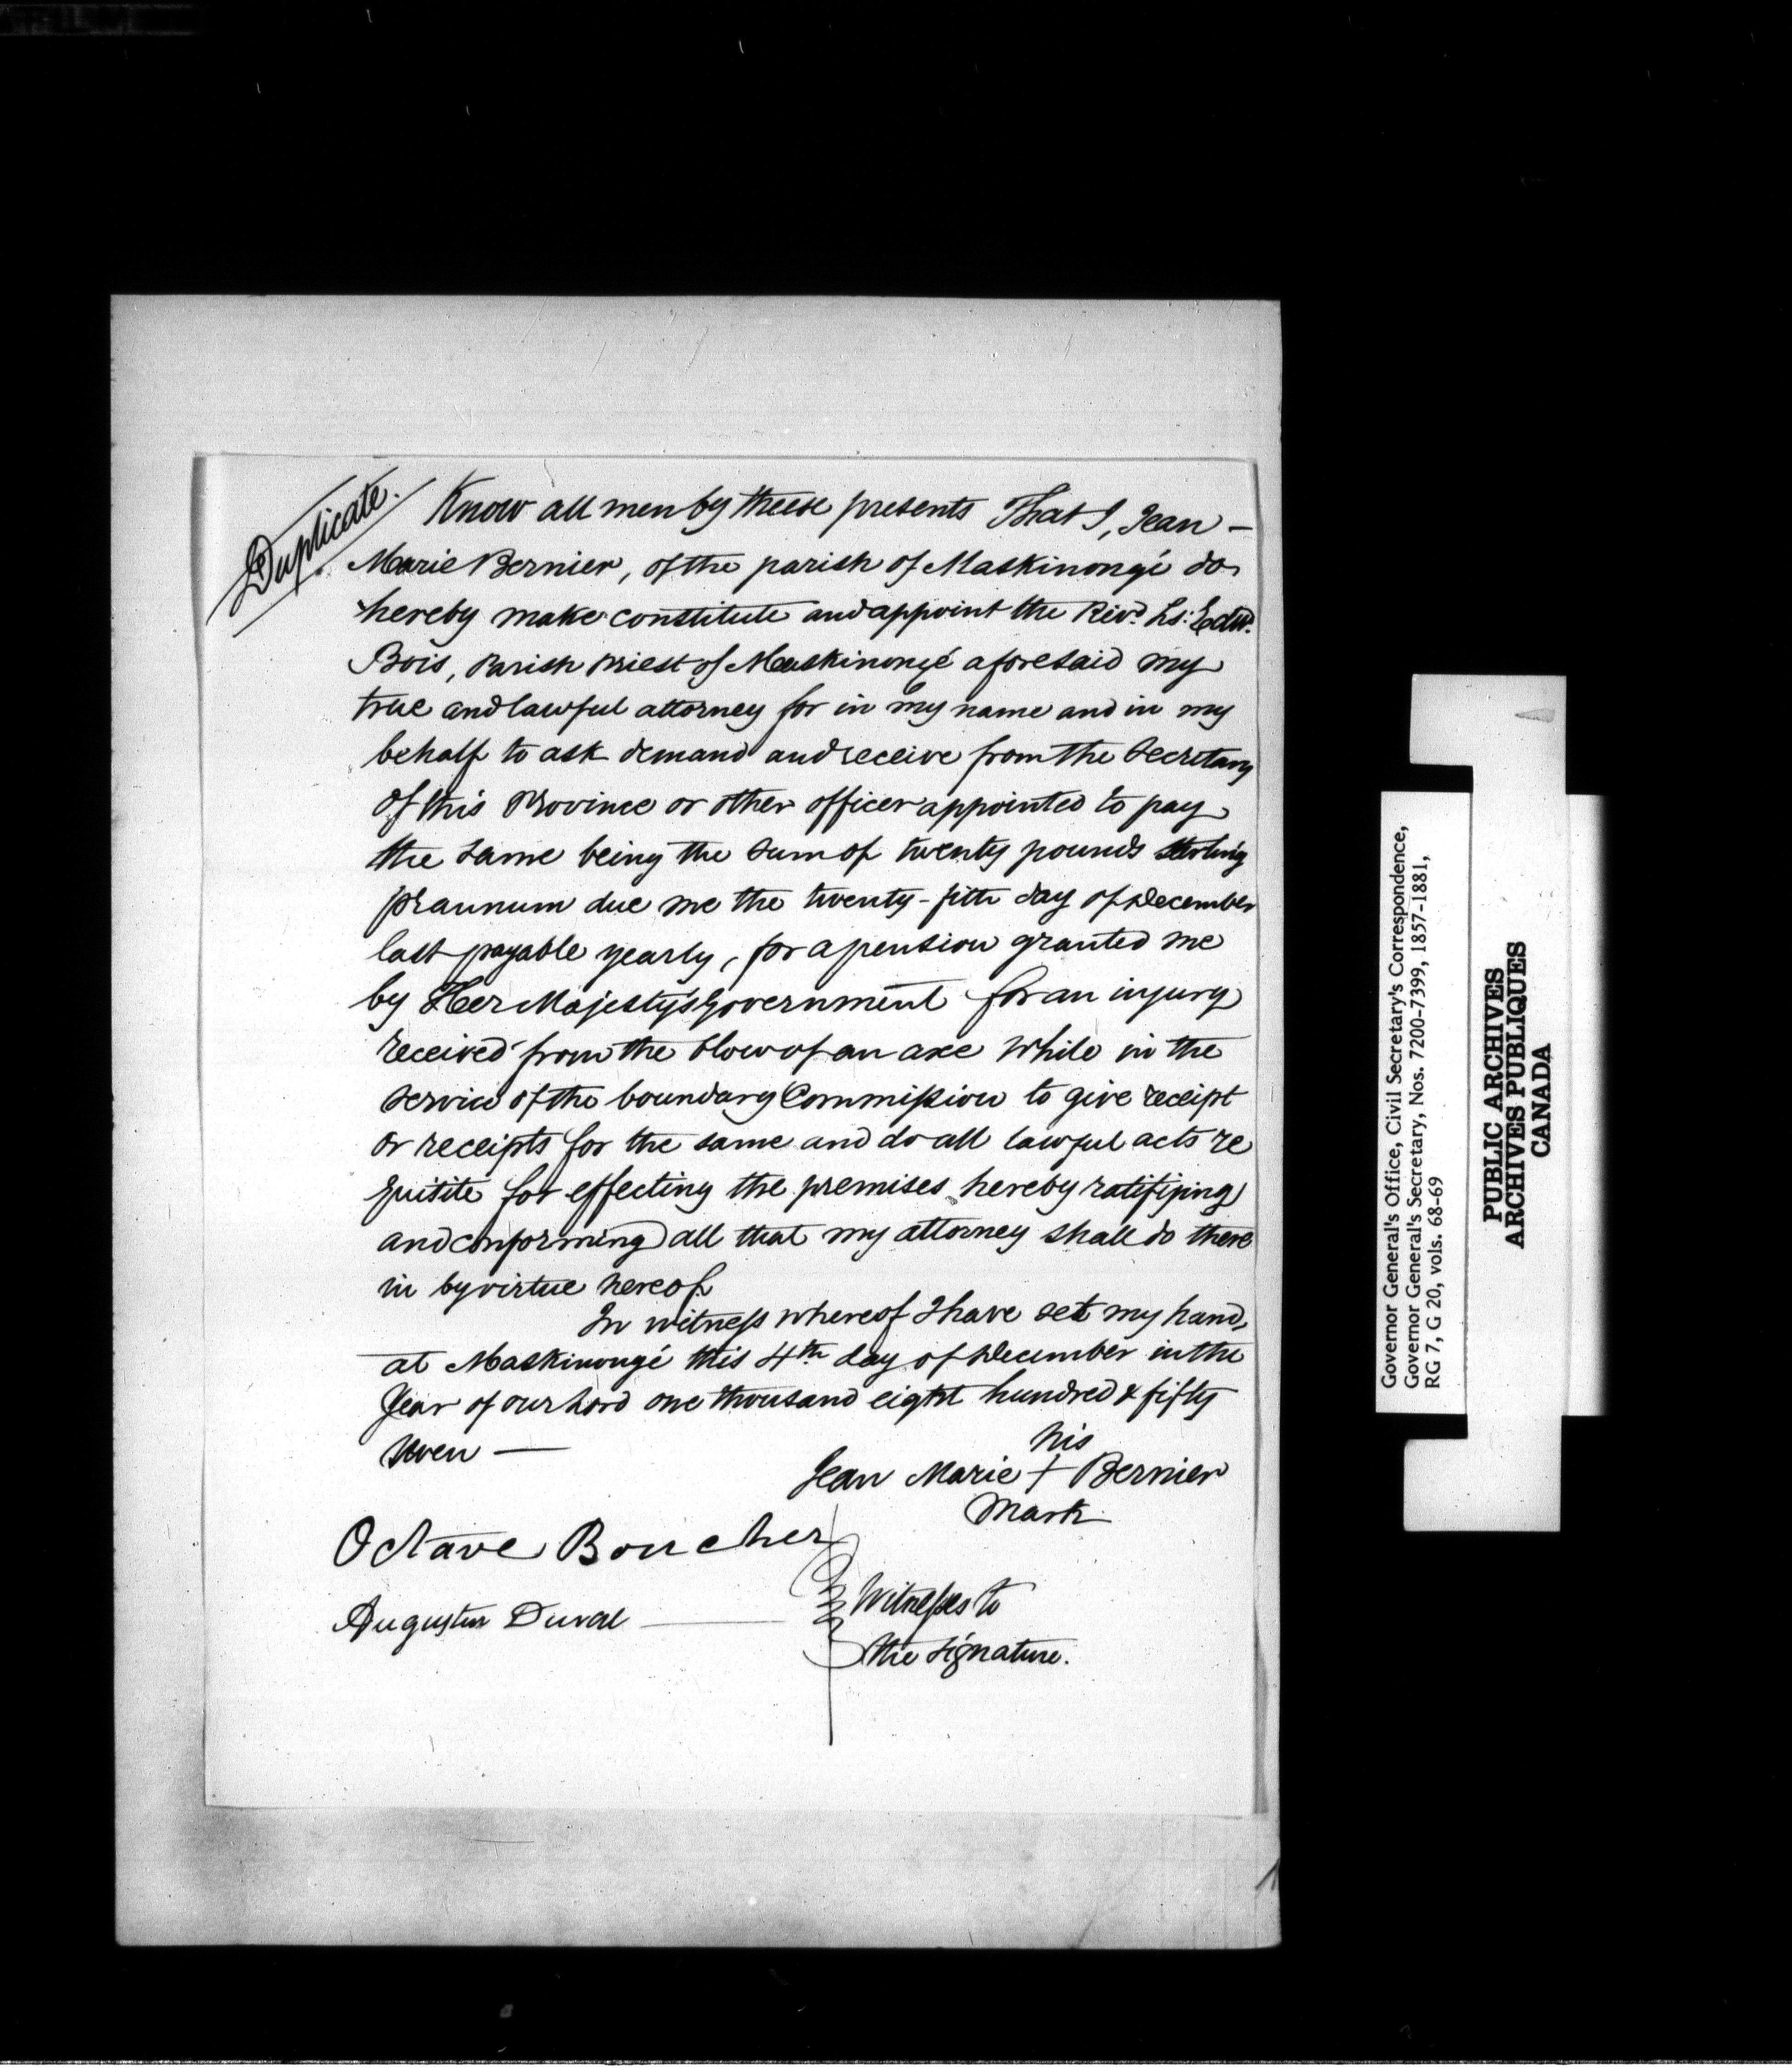 Duplicate.
Know all men by theese presents That I, Jean –
Marie Bernier, of the parish of Maskinongé do
hereby make constitute and appoint the Revd. Ls: Edw.
Bois, Parish Priest of Maskinongé aforesaid my
true and lawful attorney for in my name and in my
behalf to ask demand and receive from the Secretary
of this Province or other officer appointed to pay
the same being the sum of twenty pounds sterling
pr annum due me the twenty-fith day of December
last payable yearly, for a pension granted me
by Her Majesty's Government for an injury
received from the blow of an axe while in the
service of the boundary Commission to give receipt
or receipts for the same and do all lawful acts re
quisite for effecting the premises hereby ratifiping
and conforming all that my attorney shall do there
in by virtue hereof.
In witness whereof I have set my hand,
at Maskinongé this 4th day of December in the
Year of our Lord one thousand eight hundred & fifty
seven —
his
Jean Marie + Bernier
Mark
Octave Boucher
Augustin Duval
Witnesses to
the signature.
Governor General's Office, Civil Secretary's Correspondence,
Governor General's Secretary, Nos. 7200-7399, 1857-1881,
RG 7, G 20, vols. 68-69
PUBLIC ARCHIVES
ARCHIVES PUBLIQUES
CANADA